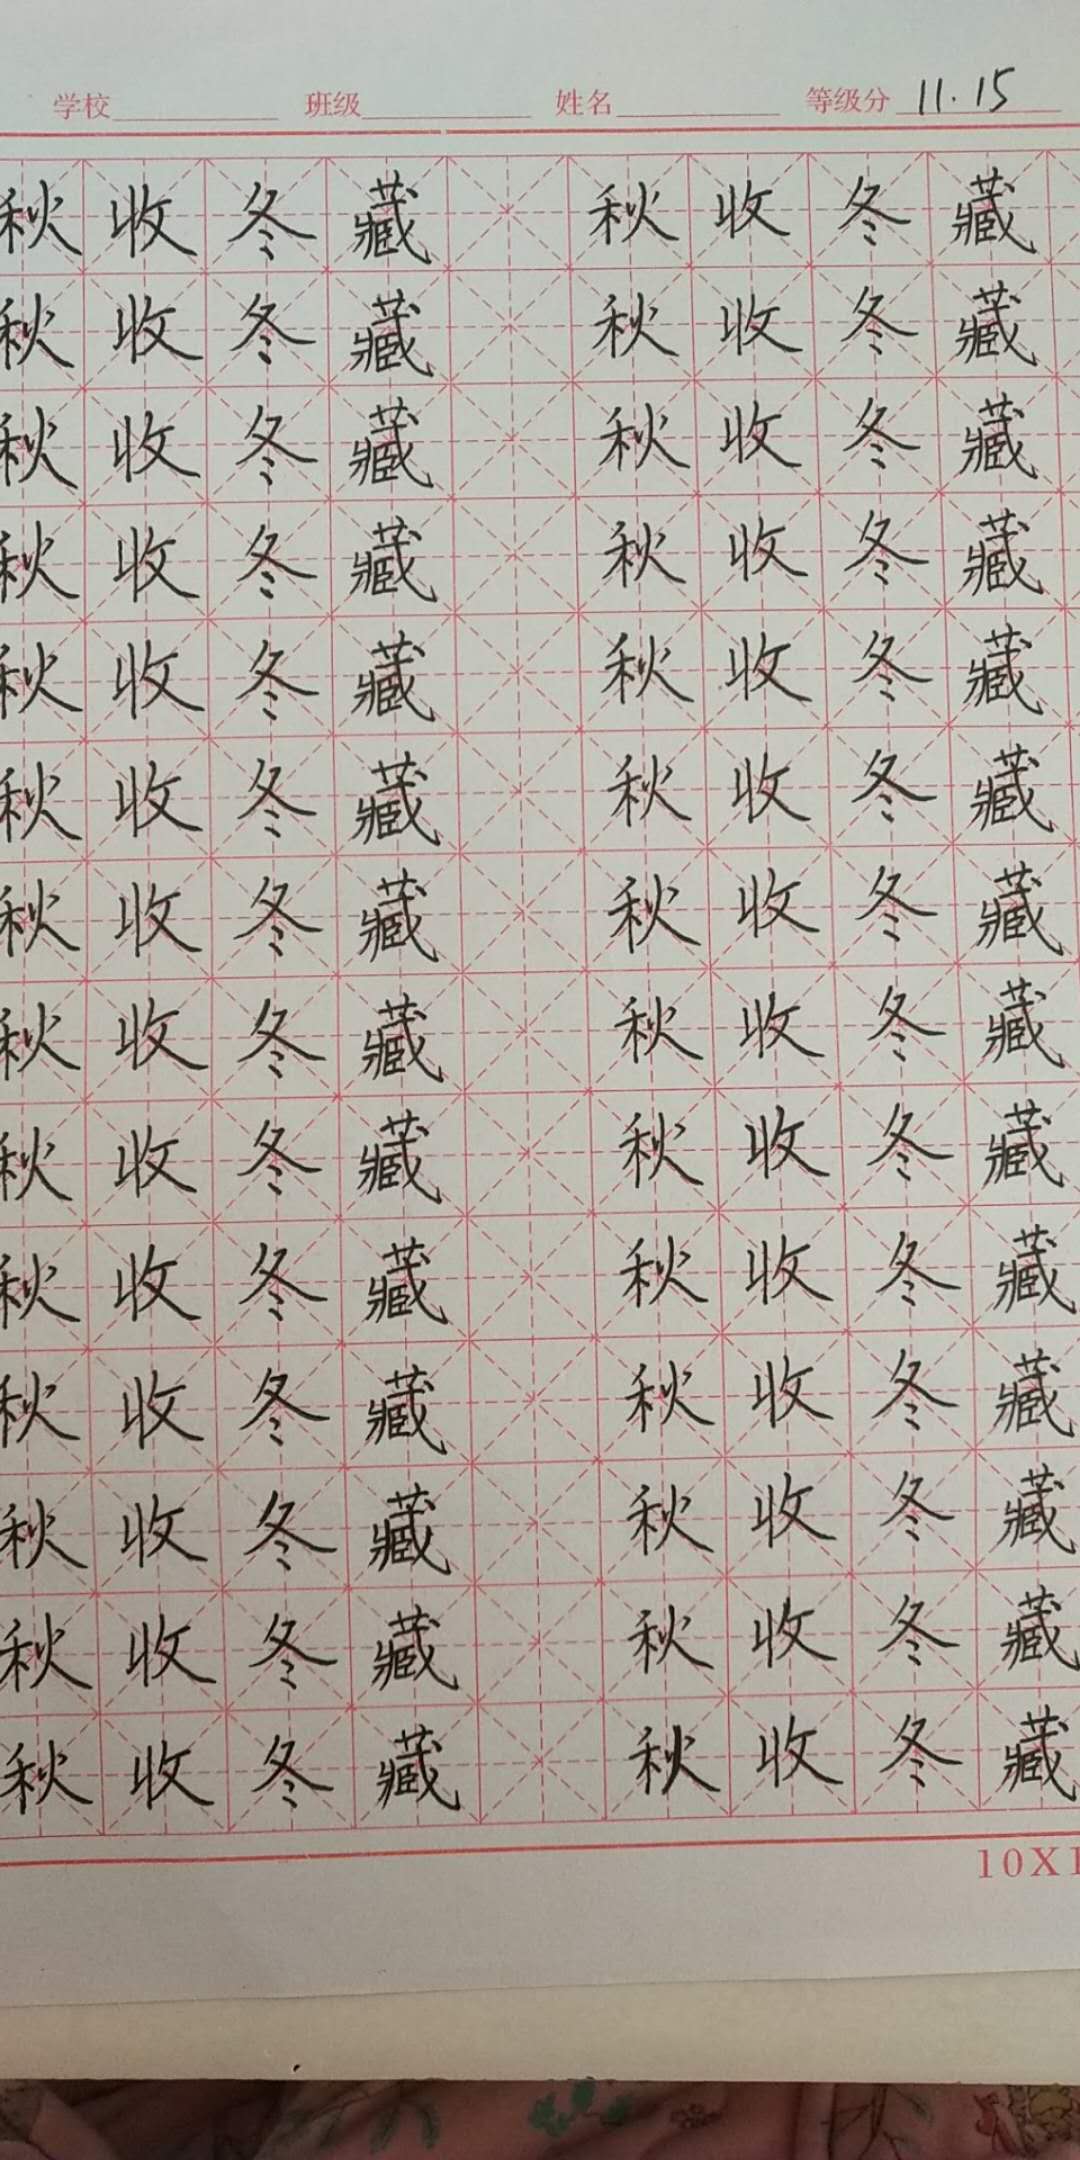 学校 班级 姓名 等级分 11.15
秋收冬藏 秋收冬藏
秋收冬藏 秋收冬藏
秋收冬藏 秋收冬藏
秋收冬藏 秋收冬藏
秋收冬藏 秋收冬藏
秋收冬藏 秋收冬藏
秋收冬藏 秋收冬藏
秋收冬藏 秋收冬藏
秋收冬藏 秋收冬藏
秋收冬藏 秋收冬藏
秋收冬藏 秋收冬藏
秋收冬藏 秋收冬藏
秋收冬藏 秋收冬藏
秋收冬藏 秋收冬藏
10X1